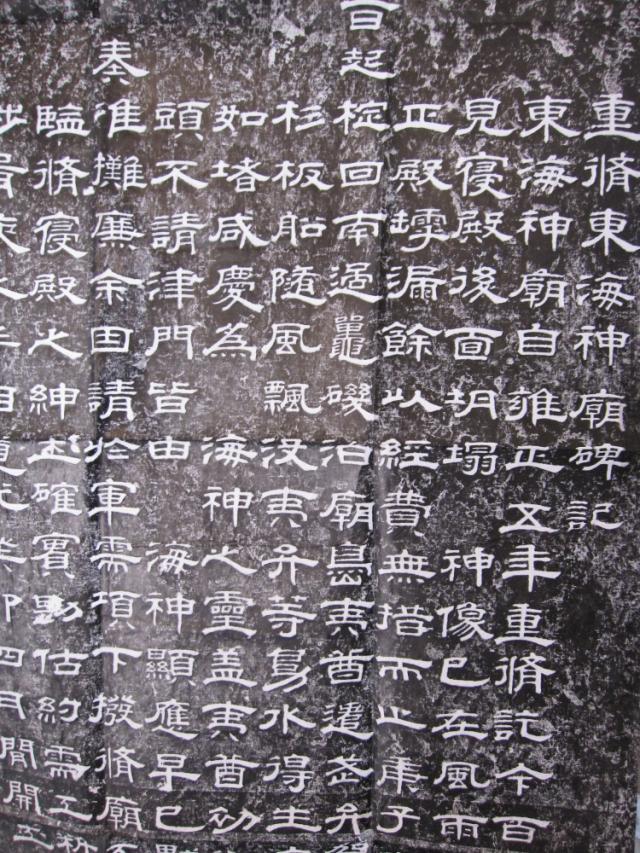 重脩東海神廟碑記
東海神廟自雍正五年重脩訖今百
見寑殿後面坍塌 神像已在風雨
正殿罅漏餘以經費無措而止庚子
百起椗回南過鼉磯泊廟島夷酋遣武弁
杉板船隨風飄沒夷弁等鳧水得生
如堵咸慶為 海神之靈蓋夷酋初
頭不請津門皆由 海神顯應早已
奏准攤廉余因請於軍需項下撥脩廟
臨脩寑殿之紳確實勘估約需工
四月開